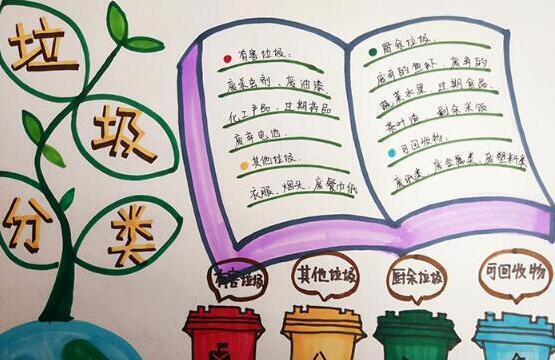 垃
圾
分
类
有害垃圾、
废杀虫剂、废油漆、
化工产品、过期药品
废弃电池、
其他垃圾、
衣服、烟头、废餐巾纸
厨余垃圾、
废弃的
蔬菜水果、过期食品、
茶叶渣、剩余米饭
可回收物、
废纸类、废金属类、废塑料类
有害垃圾
其他垃圾
厨余垃圾
可回收物